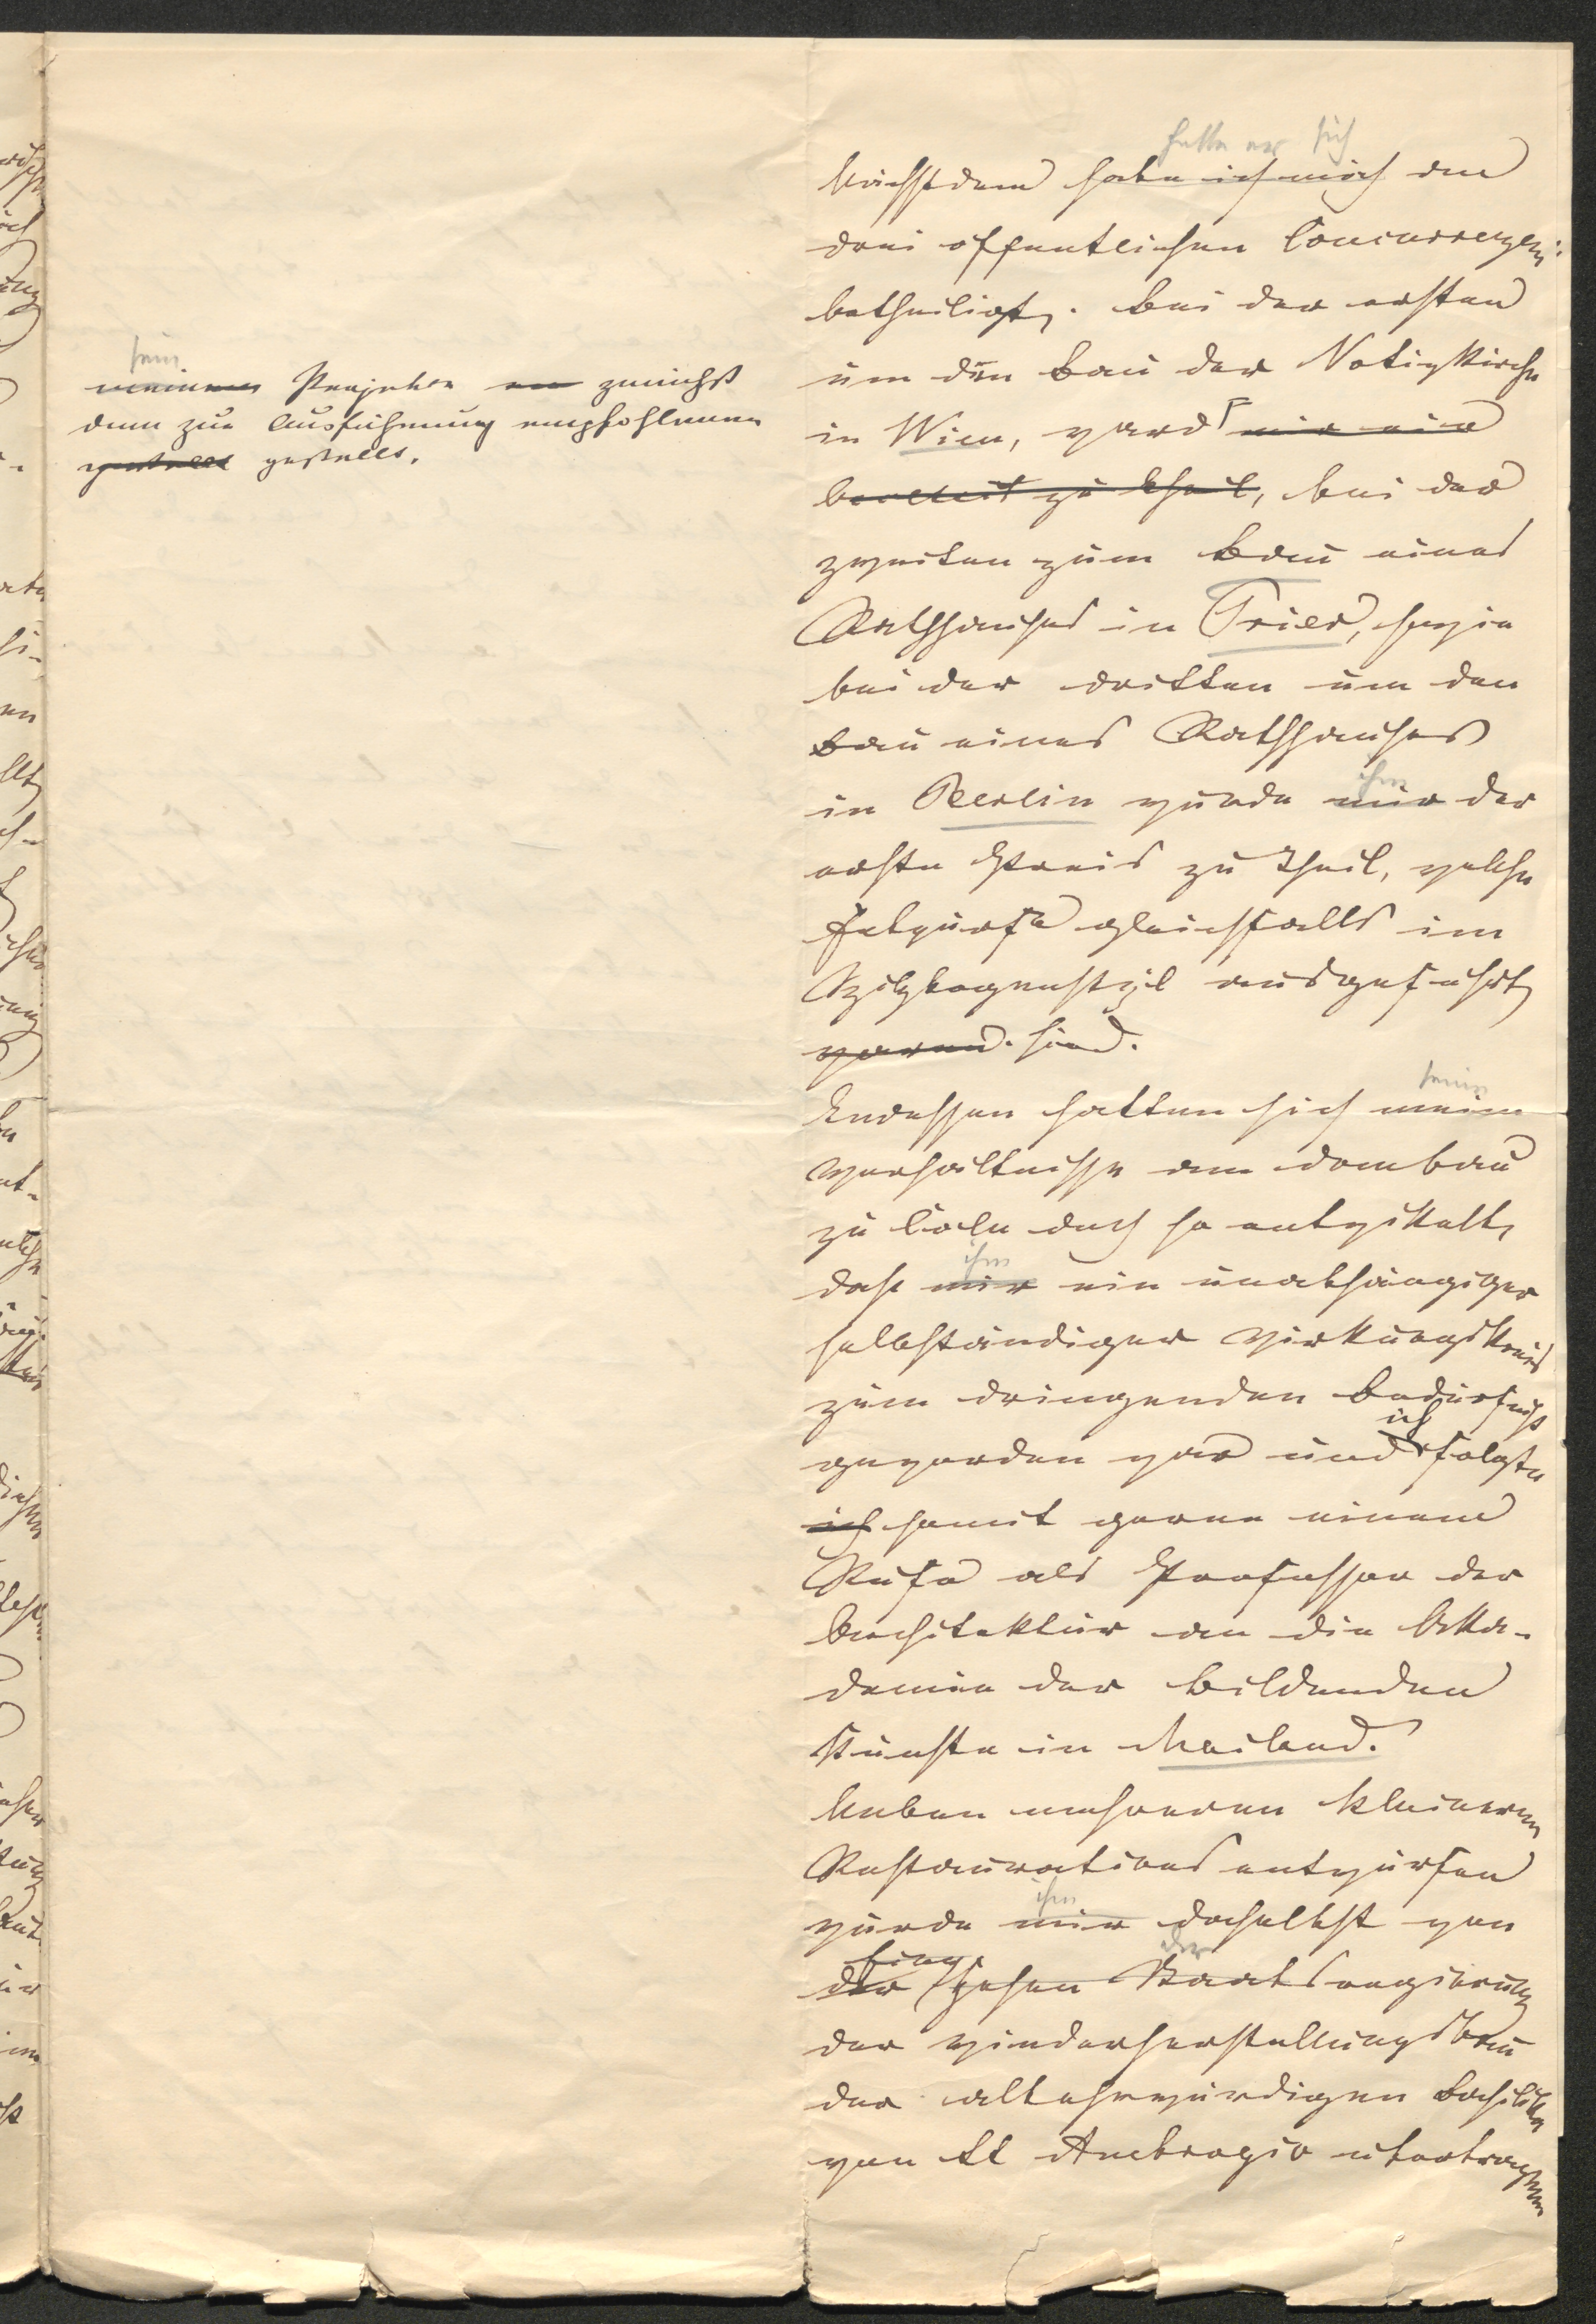 sein
meinem Projekte an zunächst
dem zur Ausführung empfohlenen
gestellt gestellt.
hatte er sich
Nächstdem habe ich mich an
drei öffentlichen Concurrenzen
betheiligt. Bei der ersten
um den Bau der Votivkirche
in Wien, ward mir ein
zu theil, bei der
zweiten zum Bau eines
Rathhauses in Trier, sowie
bei der dritten um den
Bau eines Rathhauses
ihm
in Berlin wurde mir der
erste Preis zu Theil, welche
Entwürfe gleichfalls im
Spitzbogenstyl ausgeführt
waren. sind.
seine
Indessen hatten sich meine
Verhältnisse am Dombau
zu Cöln doch so entwickelt,
ihm
daß mir ein unabhängiger
selbständiger Wirkungskreis
zum dringenden Bedürfniß
ich
geworden war und folgte
ich somit gerne einem
Rufe als Professor der
Architektur an die Aka-
demie der bildenden
Künste in Mailand.
Neben mehreren kleineren
Restaurationsentwürfen
ihm
wurde mir daselbst von
der
der hohen Staatsregierung
der Wiederherstellungsbau
der altehrwürdigen Basilika
von St Ambrogio übertragen